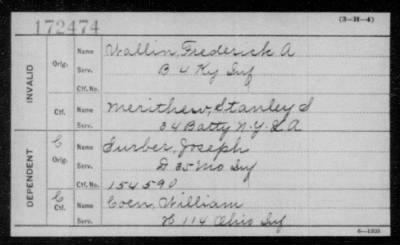 172474
(3-H-4)
INVALID
Orig.
Name Wallin, Frederick A
Serv. B 4 Ky Inf
Ctf. No.
Ctf.
Name Merithew, Stanley S
Serv. 34 Batty N.Y. L A
DEPENDENT
C
Orig.
Name Surber, Joseph
Serv. D 35 Mo Inf
Ctf. No. 154590
C
Ctf.
Name Coen, William
Serv. H 114 Ohio Inf